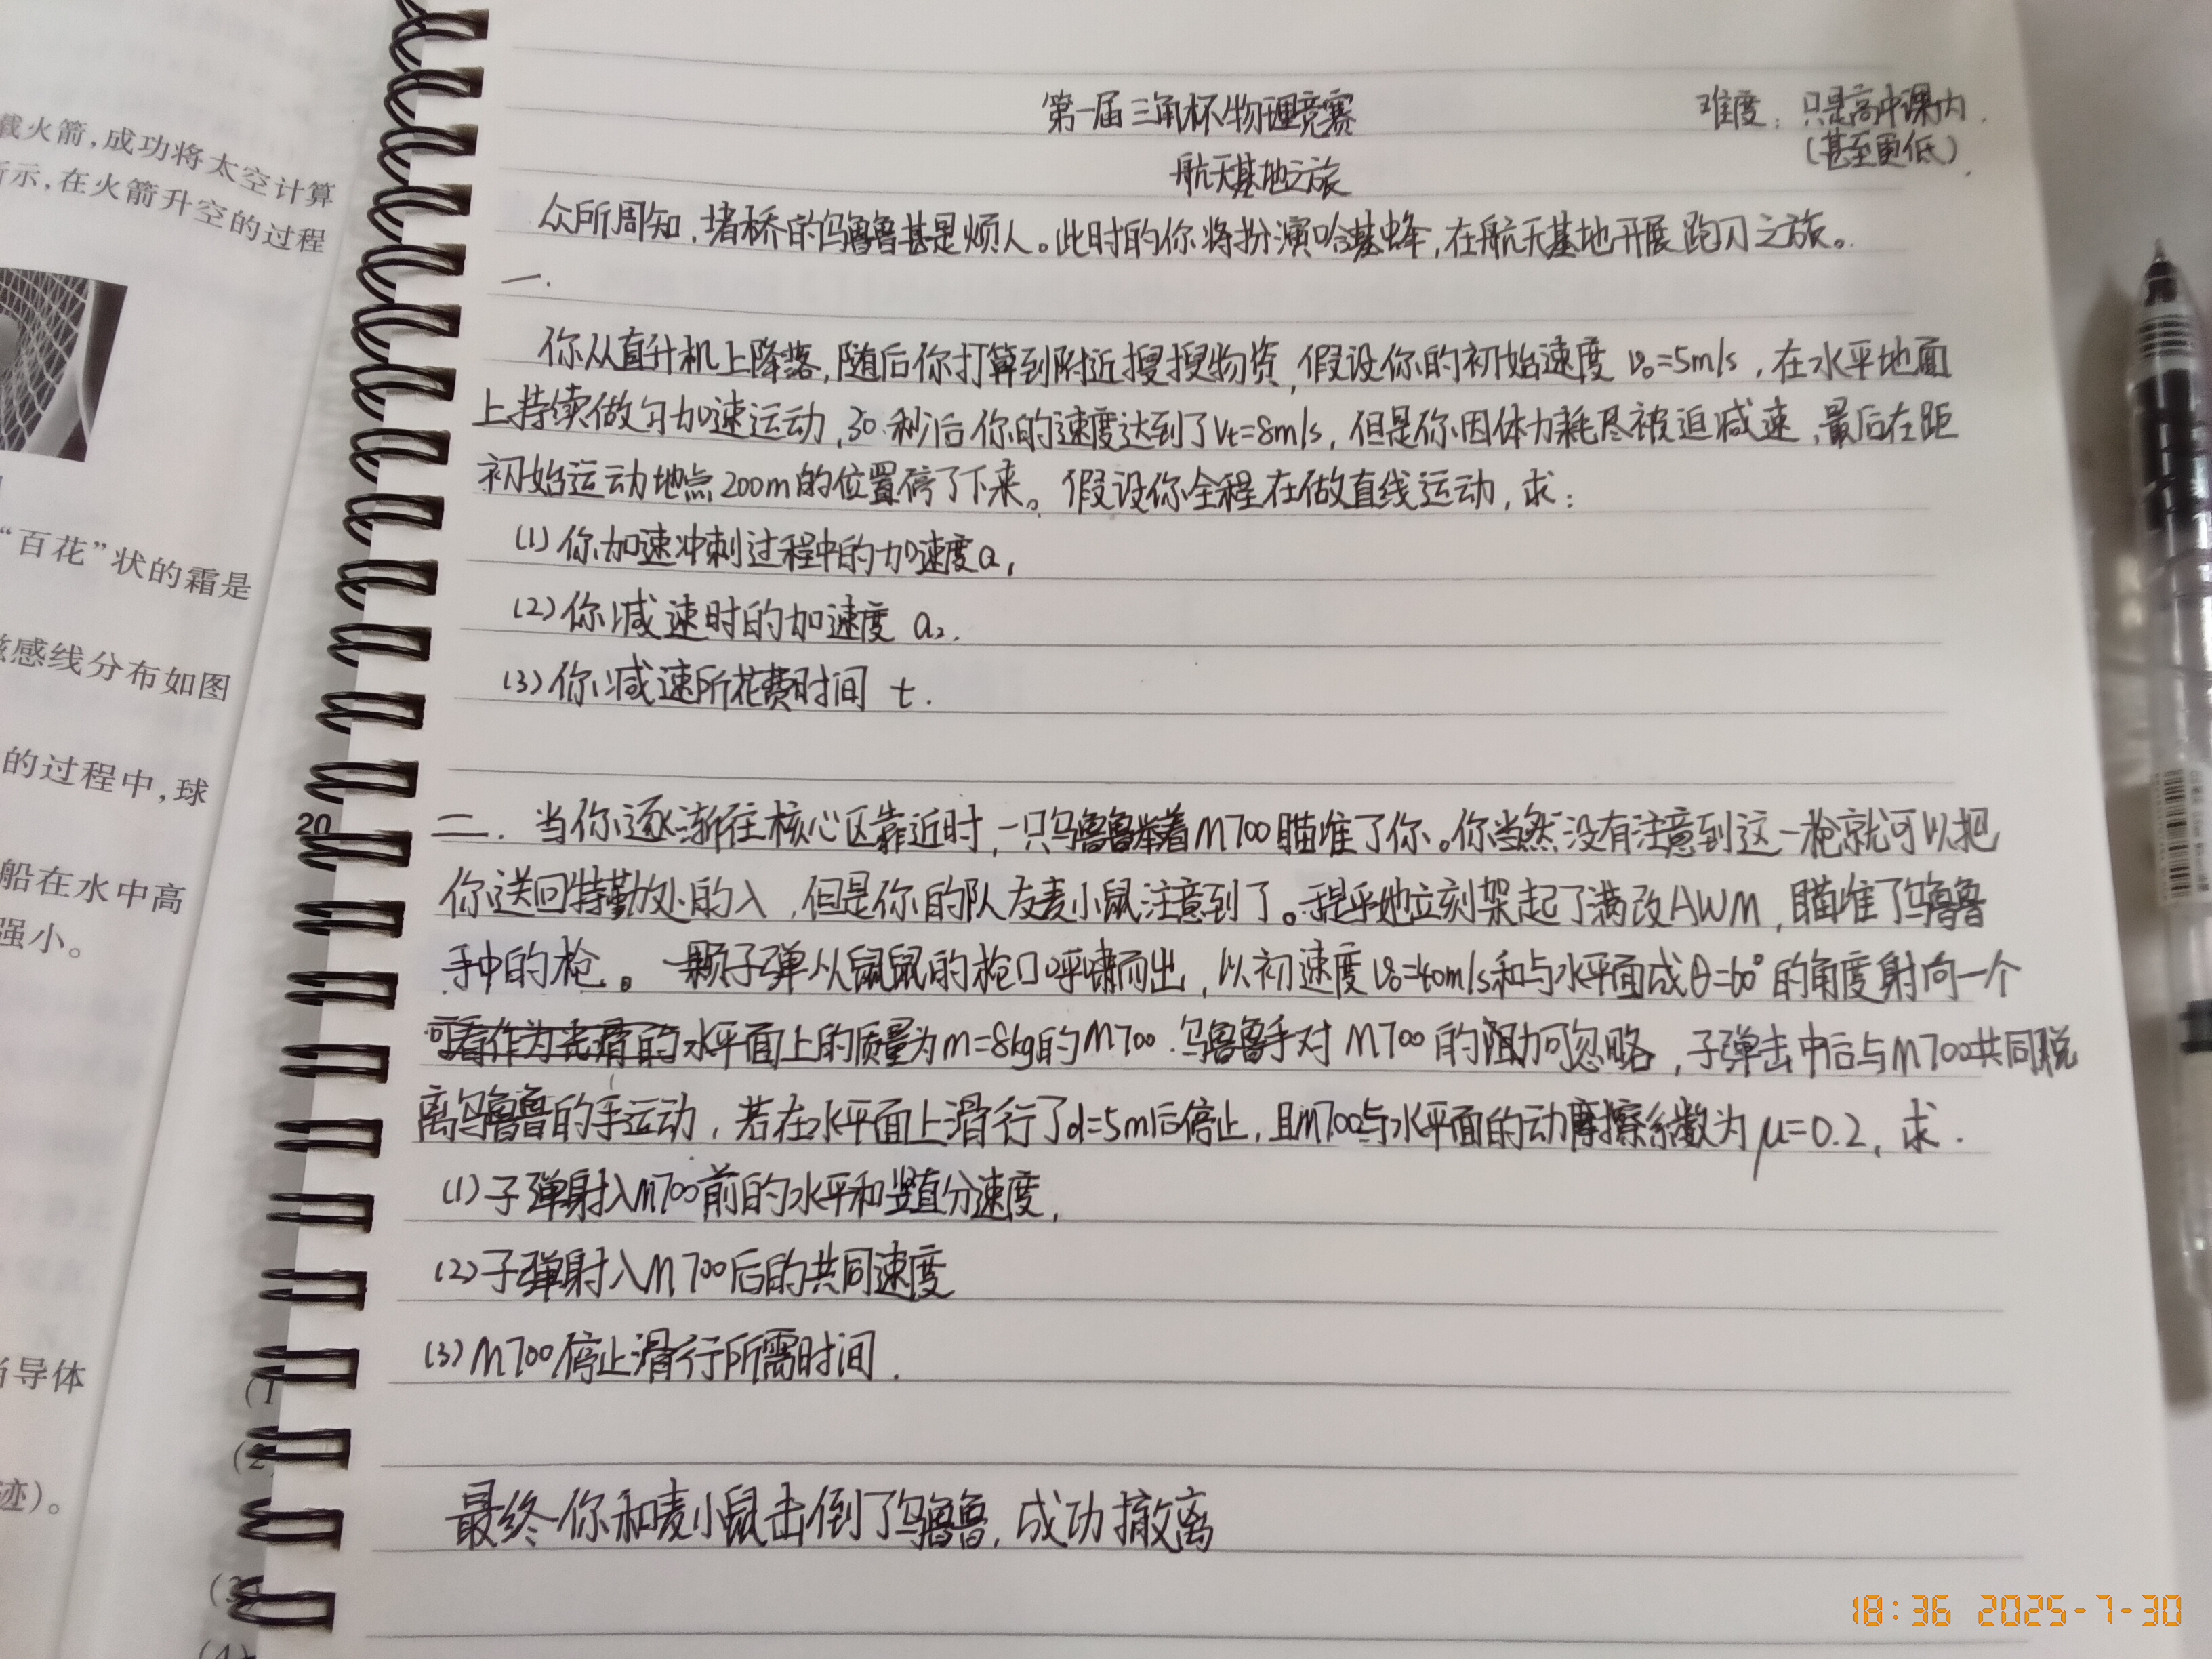 第一届三角杯物理竞赛
难度：只是高中课内.
(甚至更低).
航天基地之旅
众所周知,堵桥的乌鲁鲁甚是烦人。此时的你将扮演哈基蜂,在航天基地开展跑刀之旅。
一.
你从直升机上降落,随后你打算到附近搜搜物资,假设你的初始速度 v₀=5m/s,在水平地面
上持续做匀加速运动,30秒后你的速度达到了Vt=8m/s,但是你因体力耗尽被迫减速,最后在距
初始运动地点200m的位置停了下来。假设你全程在做直线运动,求:
(1)你加速冲刺过程中的加速度a,
(2)你减速时的加速度 a₂.
(3)你减速所花费时间 t.
二.当你逐渐往核心区靠近时,一只乌鲁鲁举着M700瞄准了你。你当然没有注意到这一枪就可以把
你送回特勤处的人,但是你的队友麦小鼠注意到了。于是乎她立刻架起了满改AWM,瞄准了乌鲁鲁
手中的枪。一颗子弹从鼠鼠的枪口呼啸而出,以初速度v₀=40m/s和与水平面成θ=60°的角度射向一个
可看作为光滑的水平面上的质量为m=8kg的M700.乌鲁鲁手对M700的阻力可忽略,子弹击中后与M700共同脱
离乌鲁鲁的手运动,若在水平面上滑行了d=5m后停止,且M700与水平面的动摩擦系数为μ=0.2,求.
(1)子弹射入M700前的水平和竖直分速度,
(2)子弹射入M700后的共同速度
(3)M700停止滑行所需时间.
最终你和麦小鼠击倒了乌鲁鲁,成功撤离
载火箭,成功将太空计算
所示,在火箭升空的过程
“百花”状的霜是
磁感线分布如图
的过程中,球
20
船在水中高
强小。
当导体
(1
(2
迹)。
(3)
(4)
18:36 2025-7-30